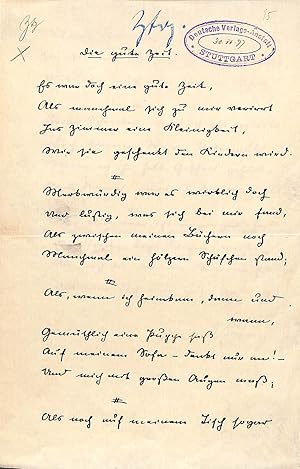 15
Deutsche Verlags-Anstalt
STUTTGART
Die gute Zeit.
Es war doch eine gute Zeit,
Als manchmal sich zu mir verirrt
Ins Zimmer eine Kleinigkeit,
Wie sie geschenkt den Kindern wird.
#
Merkwürdig war es wirklich doch
Und lustig, was sich bei mir fand,
Als zwischen meinen Büchern noch
Manchmal ein hölzern Schäfchen stand;
#
Als, wenn ich heimkam, dann und
wann,
Gemüthlich eine Puppe saß
Auf meinem Sofa – denkt nur an! –
Und mich mit großen Augen maß;
#
Als noch auf meinem Tisch sogar